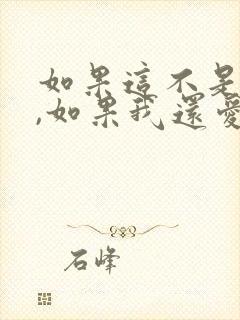 如果這不是
,如果我還愛
石峰